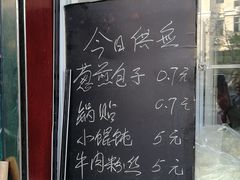 今日供应
葱煎包子 0.7元
锅贴 0.7元
小馄饨 5元
牛肉粉丝 5元